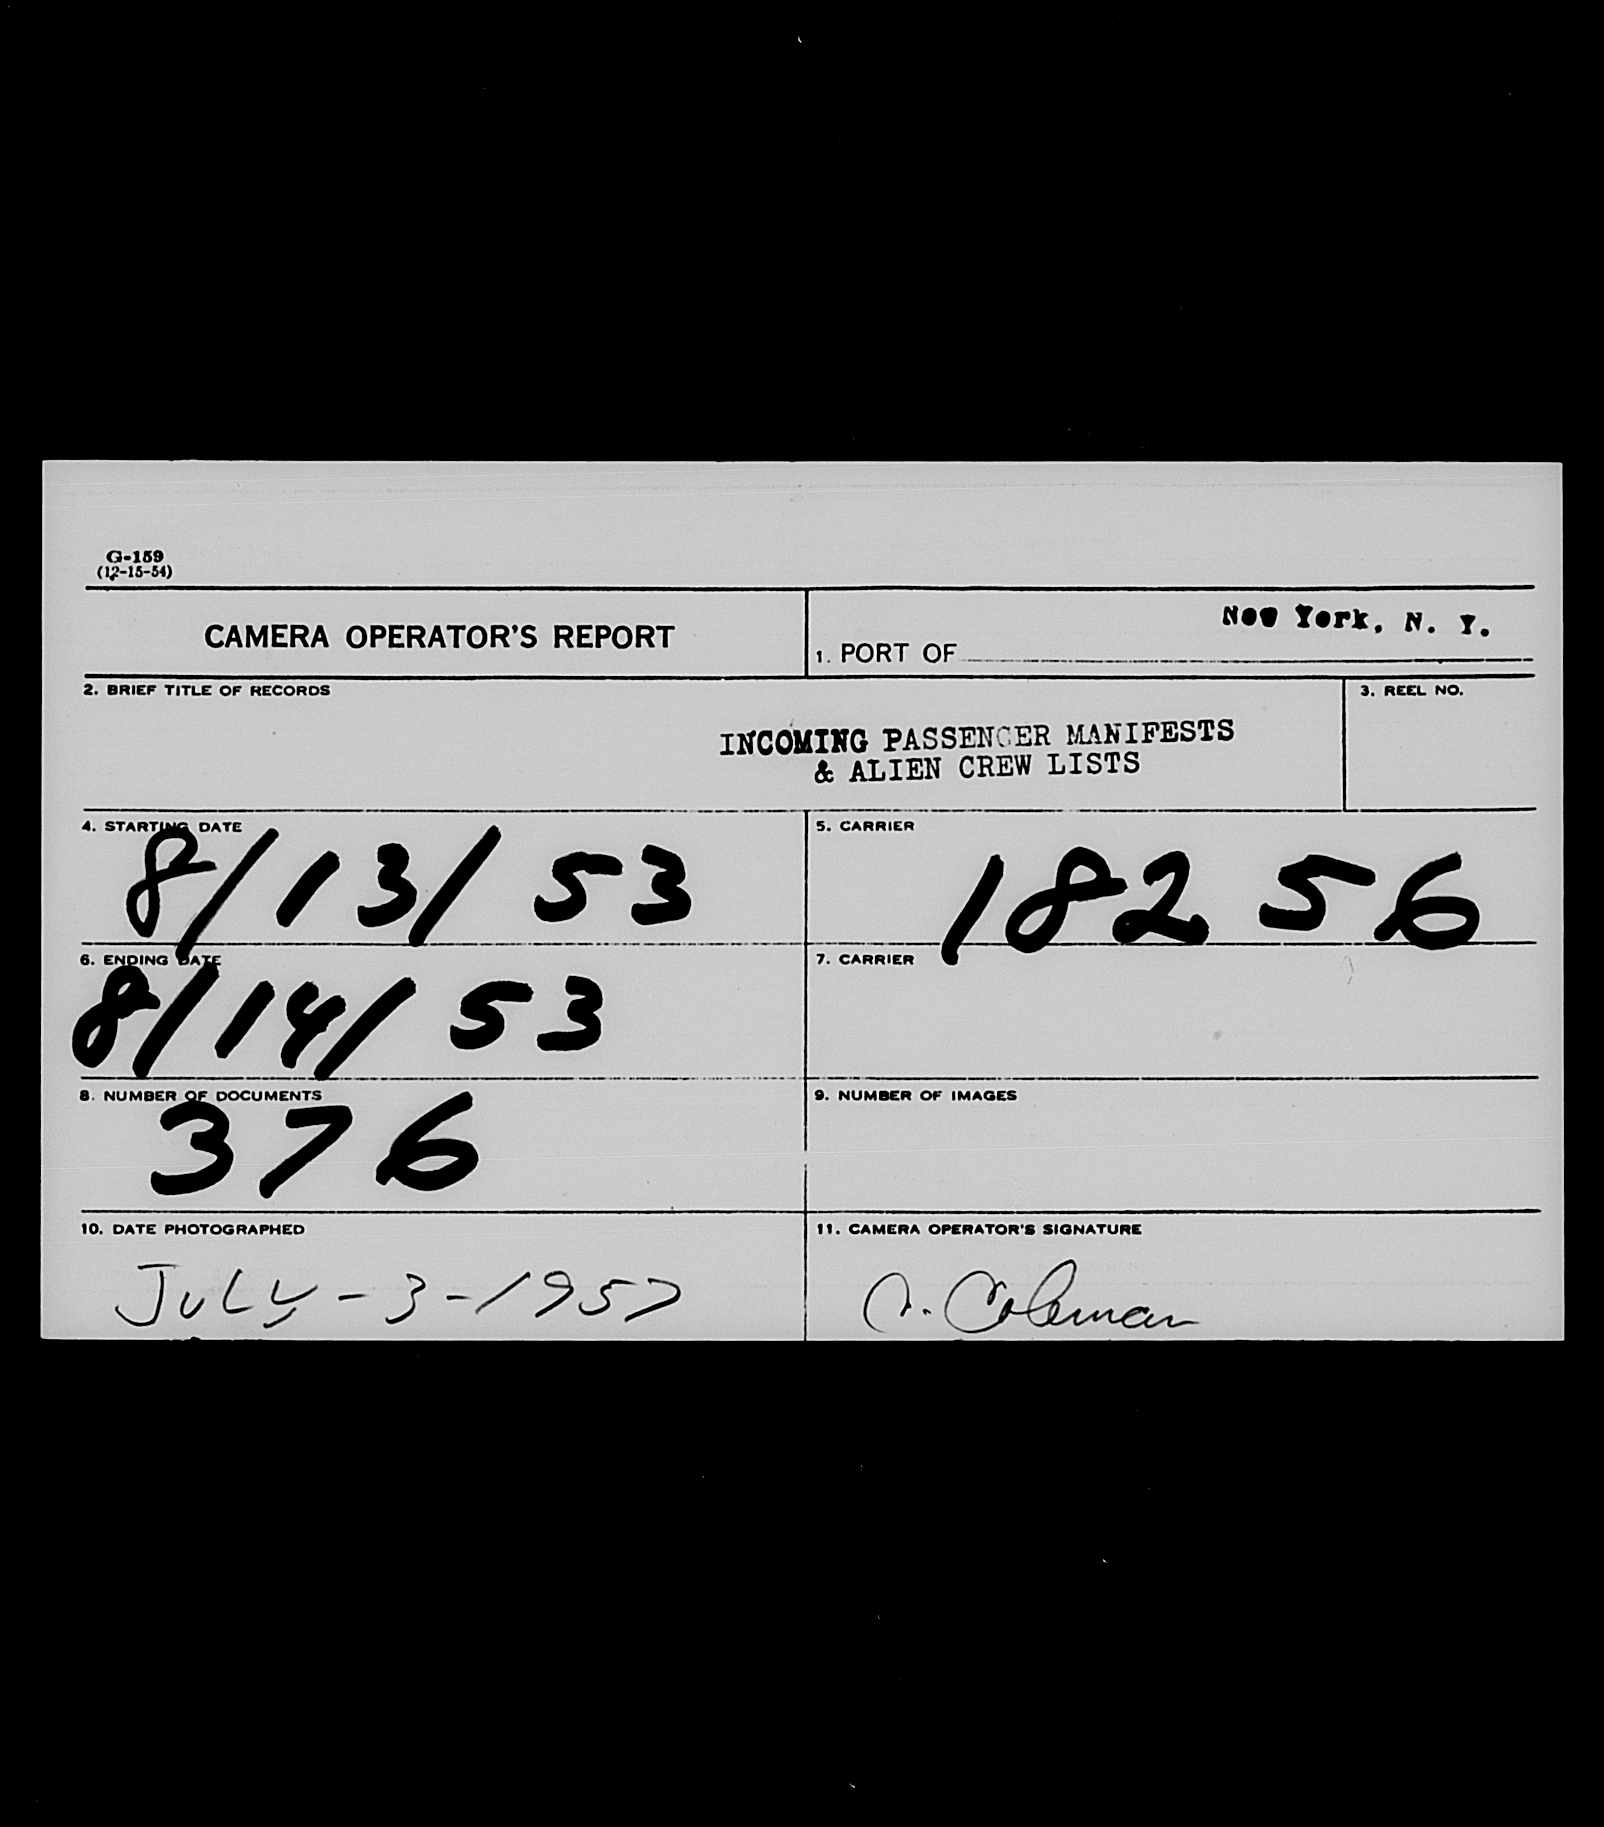 G-159
(12-15-54)
CAMERA OPERATOR'S REPORT
1. PORT OF New York, N. Y.
2. BRIEF TITLE OF RECORDS
3. REEL NO.
INCOMING PASSENGER MANIFESTS
& ALIEN CREW LISTS
4. STARTING DATE
8/13/53
5. CARRIER
18256
6. ENDING DATE
8/14/53
7. CARRIER
8. NUMBER OF DOCUMENTS
376
9. NUMBER OF IMAGES
10. DATE PHOTOGRAPHED
JuLy-3-1957
11. CAMERA OPERATOR'S SIGNATURE
Coleman